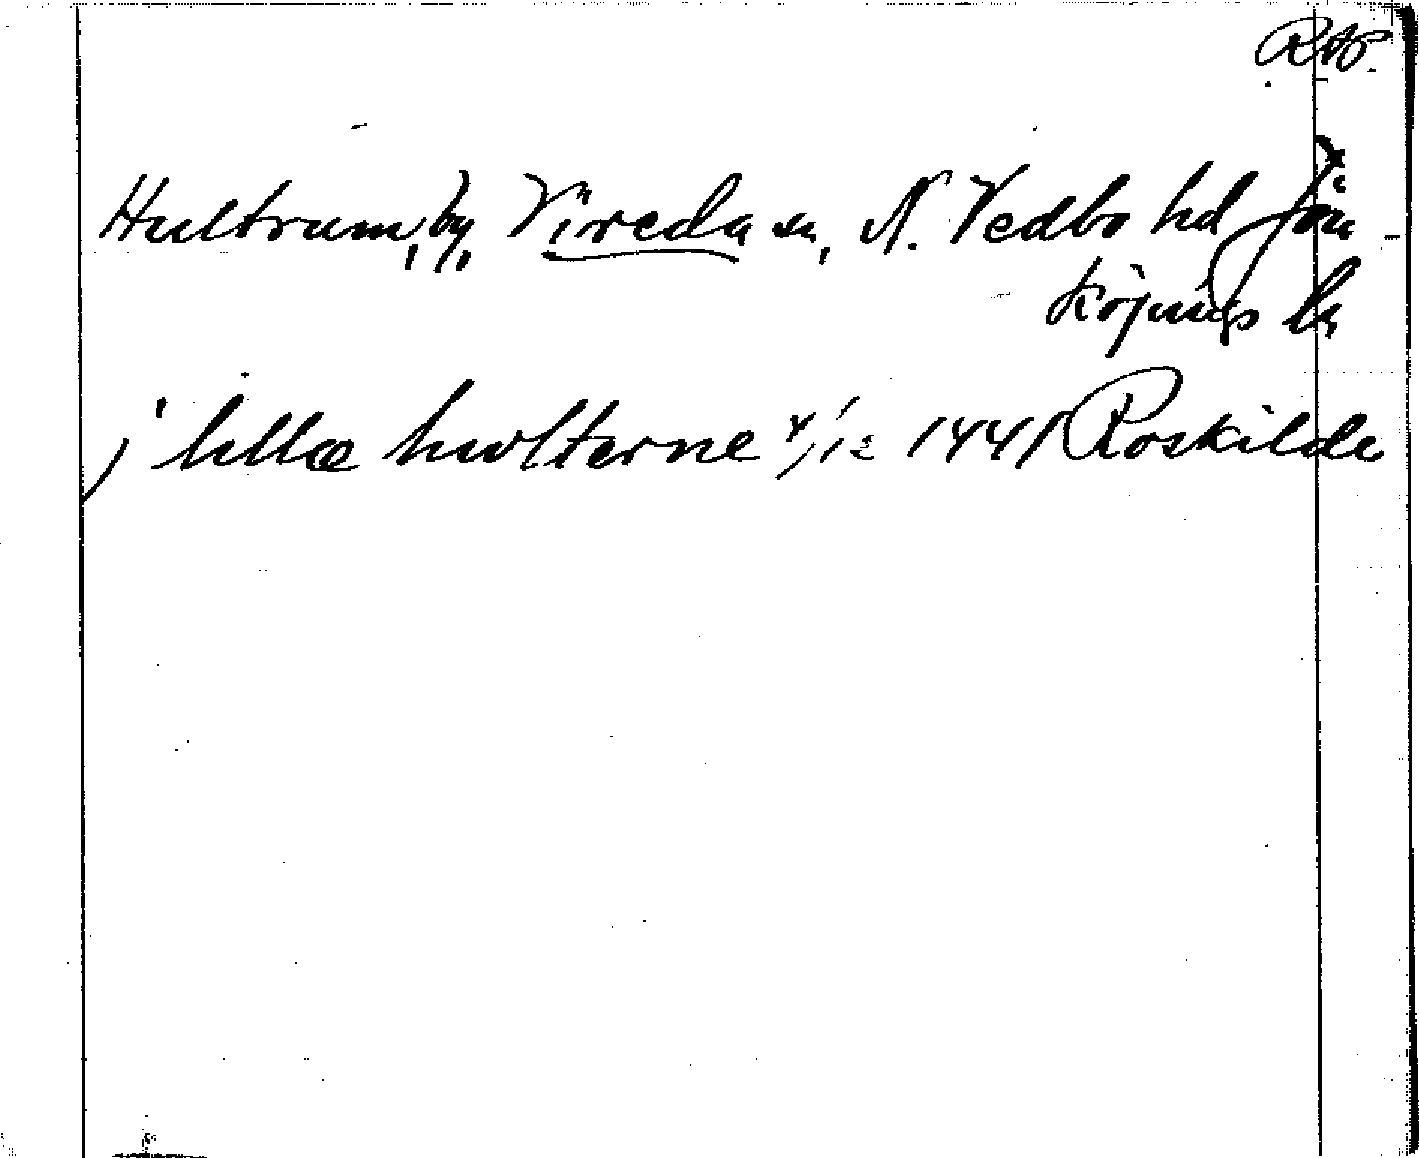 RAp.
Hultrum, by, Vireda sn, N. Vedbo hd Jön-
köpings ln
j lillæ hwlterne 4/12 1441 Roskilde